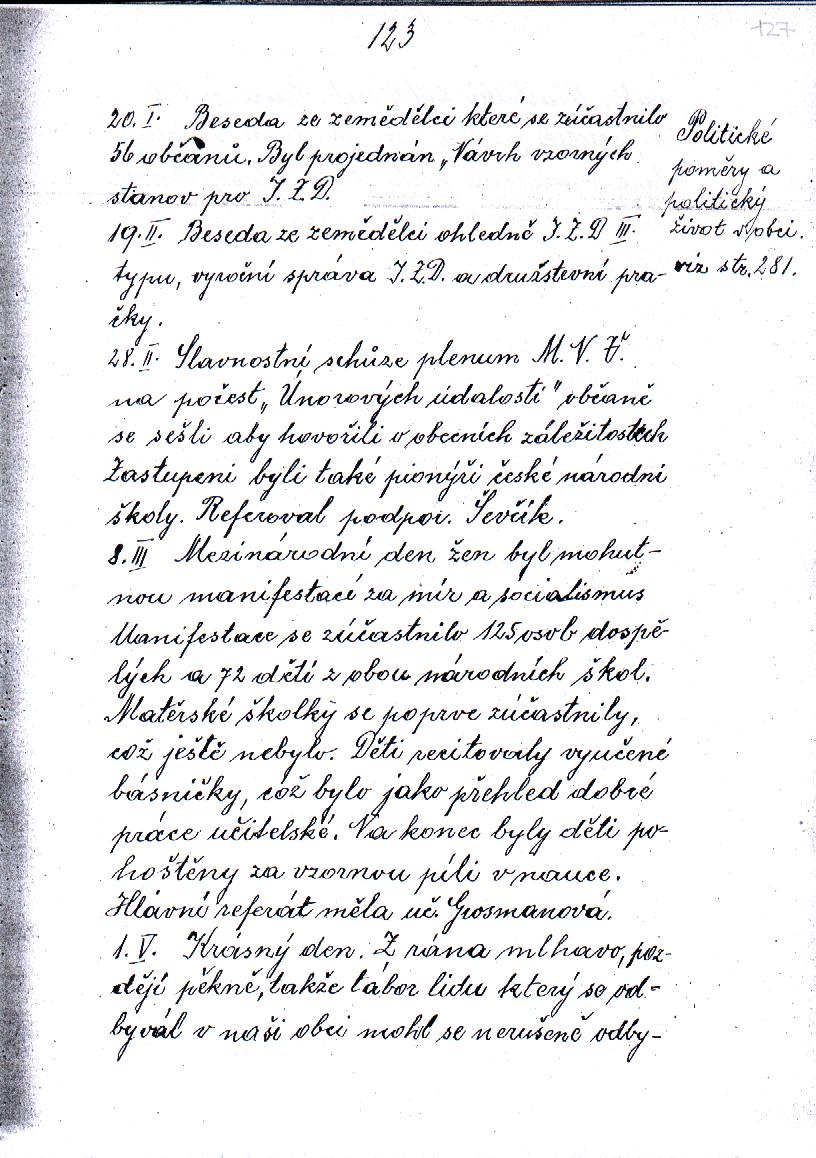 123
127
20. I. Beseda ze zemědělci které se zúčastnilo
56 občanů. Byl projednán „Návrh vzorných
stanov pro J.Z.D.
19. II. Beseda ze zemědělci ohledně J.Z.D III.
typu, vyroční správa J.Z.D. a družstevní pra-
čky.
28. II. Slavnostní schůze plenum M.V. Ž.
na počest „Únorových údalostí" občané
se sešli aby hovořili v obecních záležitostech
Zastupeni byli také pionýři české národní
školy. Referoval podpor. Ševčík.
8. III Mezinárodní den žen byl mohut-
nou manifestací za mír a socialismus
Manifestace se zúčastnilo 125 osob dospě-
lých a 72 dětí z obou národních škol.
Matěrské školky se poprve zúčastnily,
což ještě nebylo. Děti recitovaly vyučené
básničky, což bylo jako přehled dobré
práce učitelské. Na konec byly děti po-
hoštěny za vzornou píli v nauce.
Hlavní referát měla uč. Grosmanová.
1. V. Krásný den. Z rána mlhavo, poz-
ději pěkně, takže tábor lidu který se od-
byvál v naši obci mohl se nerušeně odby-
Politické
poměry a
politický
život v obci.
viz str. 281.